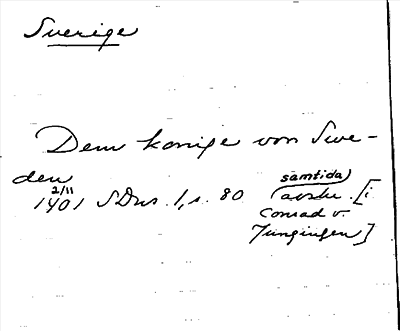 Sverige
Dem konige von Swe-
den
2/11
1401 SDns. 1, s. 80 (samtida) avskr. [i
Conrad v.
Jungingen]